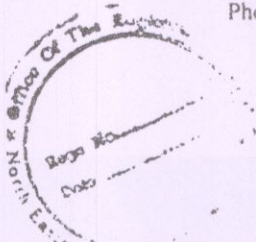 Pho
Office Of The
Regn No.
Date
North Eas